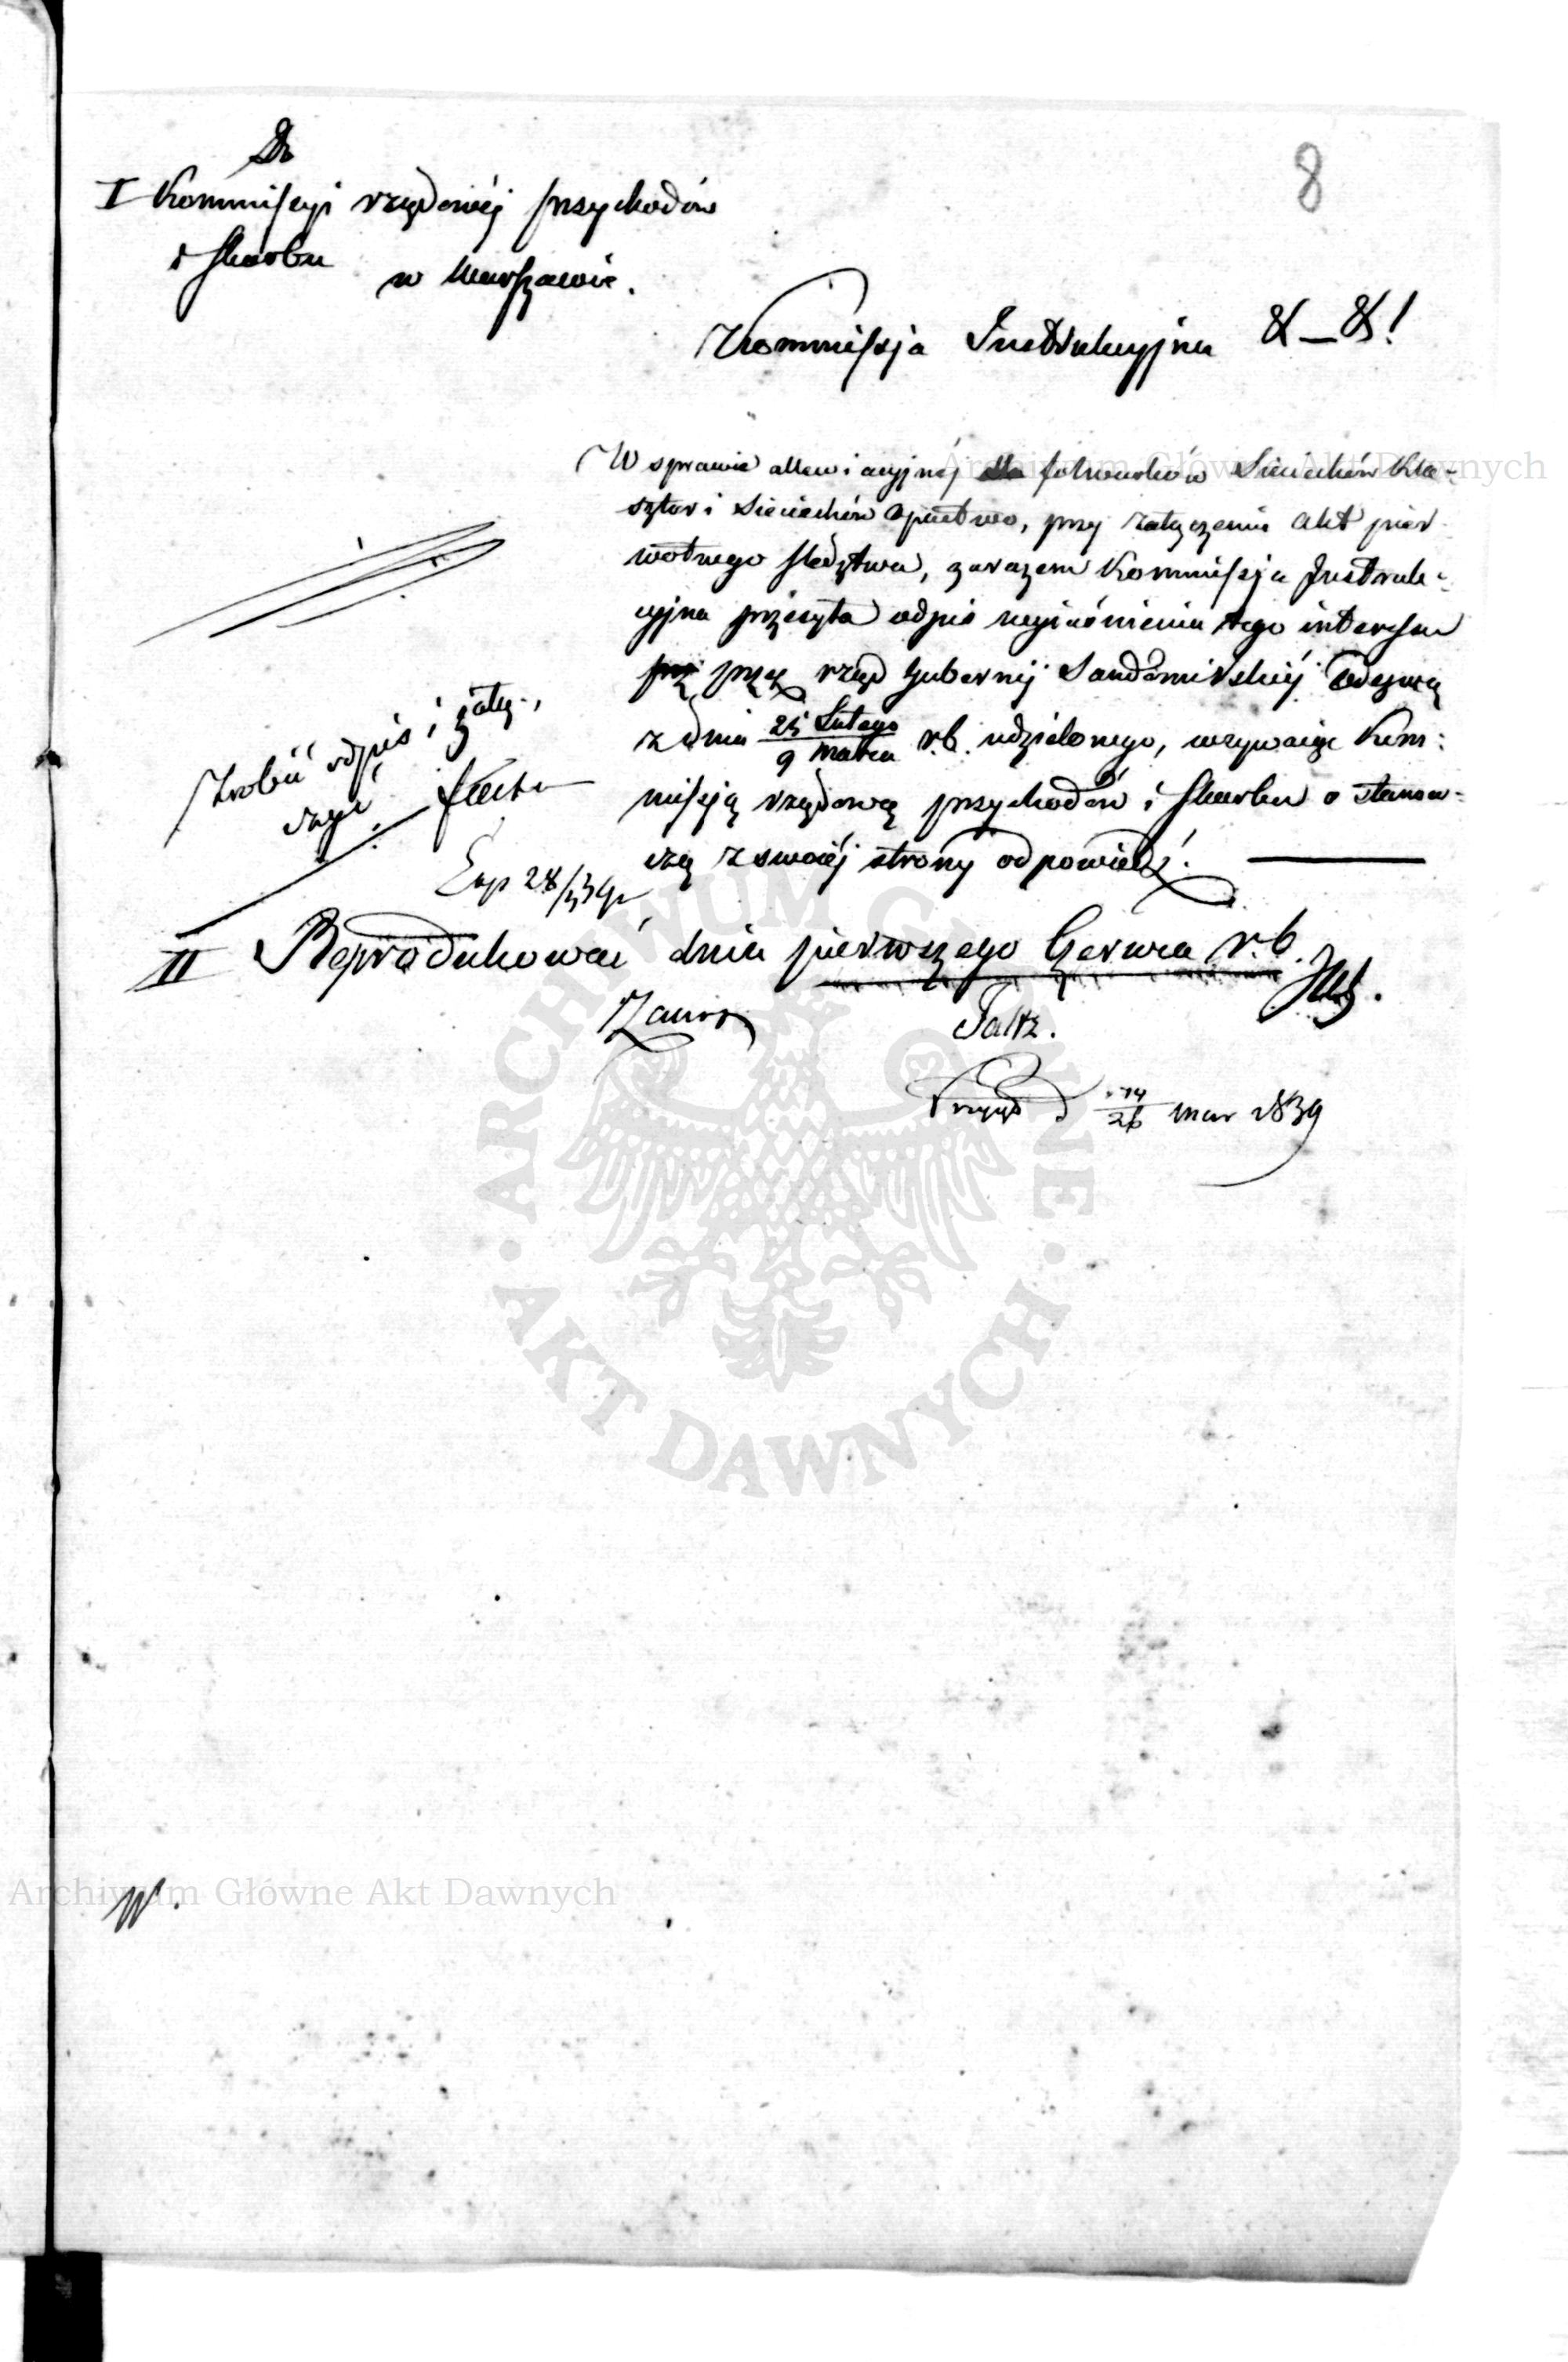 8
Do
I Kommissyi rządowéj przychodów
i skarbu
w Warszawie.
Kommissja Instrukcyjna &_&!
W sprawie allewiacyjnéj dla folwarków Sieciechów Kla-
sztor i Sieciechów Opactwo, przy załączeniu akt pier
wotnego śledztwa, zarazem Kommissja Instruk-
cyjna przesyła odpis wyjaśnienia tego interesu
przez rząd Gubernij Sandomirskiéj odezwą
z dnia 25 Lutego / 9 Marca r.b. udzielonego, wzywając Kom:
missją rządową przychodów i skarbu o stanow-
czą z swojéj strony odpowiedź.
Zrobić odpis i załą.
Exp 28/3 39
II Reprodukować dnia pierwszego Czerwca r.b.
14/26 mar 1839
W.
Archiwum Główne Akt Dawnych
ARCHIWUM GŁÓWNE
AKT DAWNYCH
Archiwum Główne Akt Dawnych